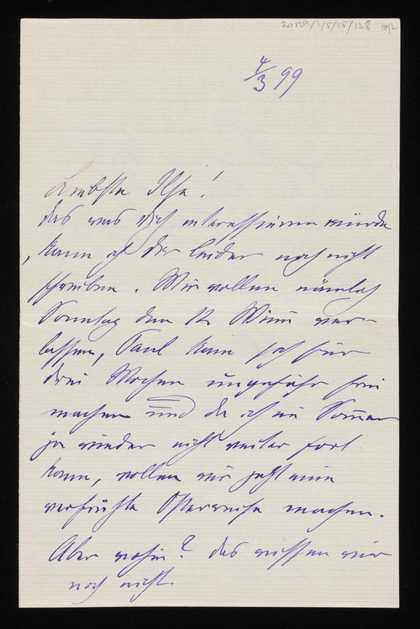 4/3 99
Liebste Ilse!
Das was Dich interessieren würde
kann ich Dir leider noch nicht
schreiben. Wir wollen nämlich
Sonntag den 12 Wien ver-
lassen, Paul kann sich für
drei Wochen ungefähr frei
machen und da ich im Sommer
ja wieder nicht weiter fort
kann, wollen wir jetzt eine
verfrühte Osterreise machen.
Aber wohin? Das wissen wir
noch nicht.